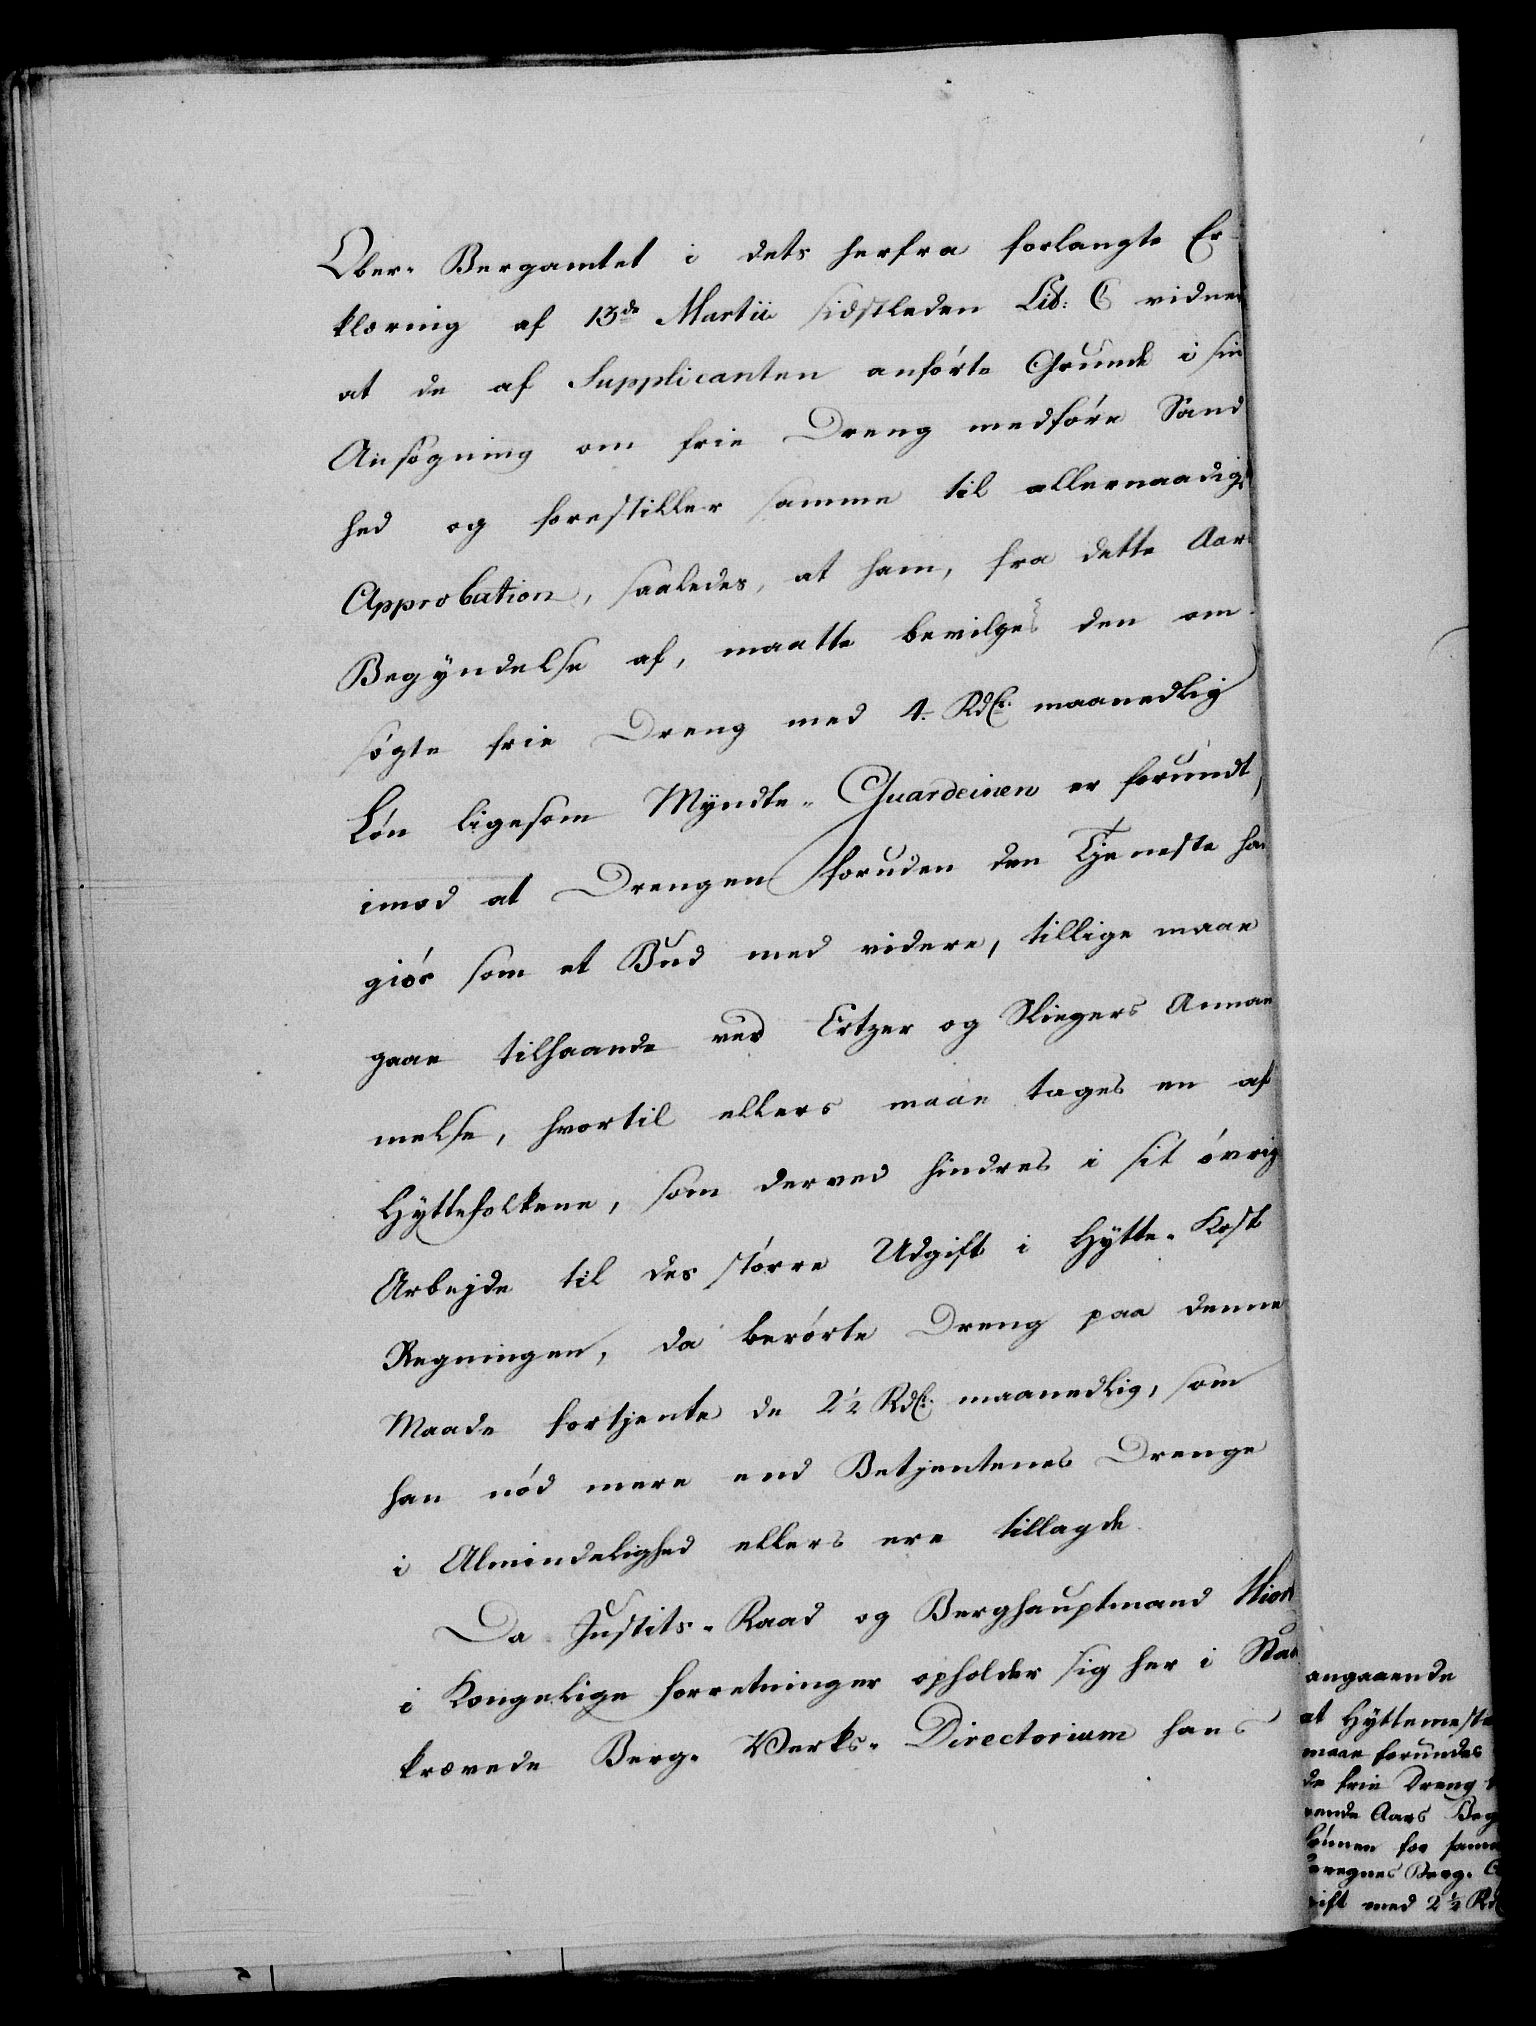 Ober- Bergamtet i dets herfra forlangte Er-
klæring af 13de Martii sidstleden Lit: C vidner
at de af Supplicanten anförte Grunde i sin
Ansøgning om frie Dreng medföre Sand
hed og forestiller samme til allernaadigst
Approbation, saaledes, at ham, fra dette Aars
Begÿndelse af, maatte bevilges den om-
søgte frie Dreng med 4. Rdlr. maanedlig
Løn ligesom Mÿndte- Guardeinen er forundt,
imod at Drengen foruden den Tjeneste han
giör som et Bud med videre, tillige maae
gaae tilhaande ved Ertzer og Sliegers Annam
melse, hvortil ellers maae tages en af
Hÿttefolkene, som derved hindres i sit övrige
Arbejde til des större Udgift i Hÿtte- Kost
Regningen, da berörte Dreng paa denne
Maade fortjente de 2½ Rdlr. maanedlig, som
han nød mere end Betjentenes Drenge
i Almindelighed ellers ere tillagde.
Da Justits- Raad og Berghauptmand Hiort
i Kongelige Forretninger opholder sig her i Staden
krævede Berg- Verks- Directorium hans
angaaende
at Hÿttemester
maae forundes
de frie Dreng
rende Aars Beg
Lønnen for samme
beregnes Berg-
gift med 2½ Rdlr